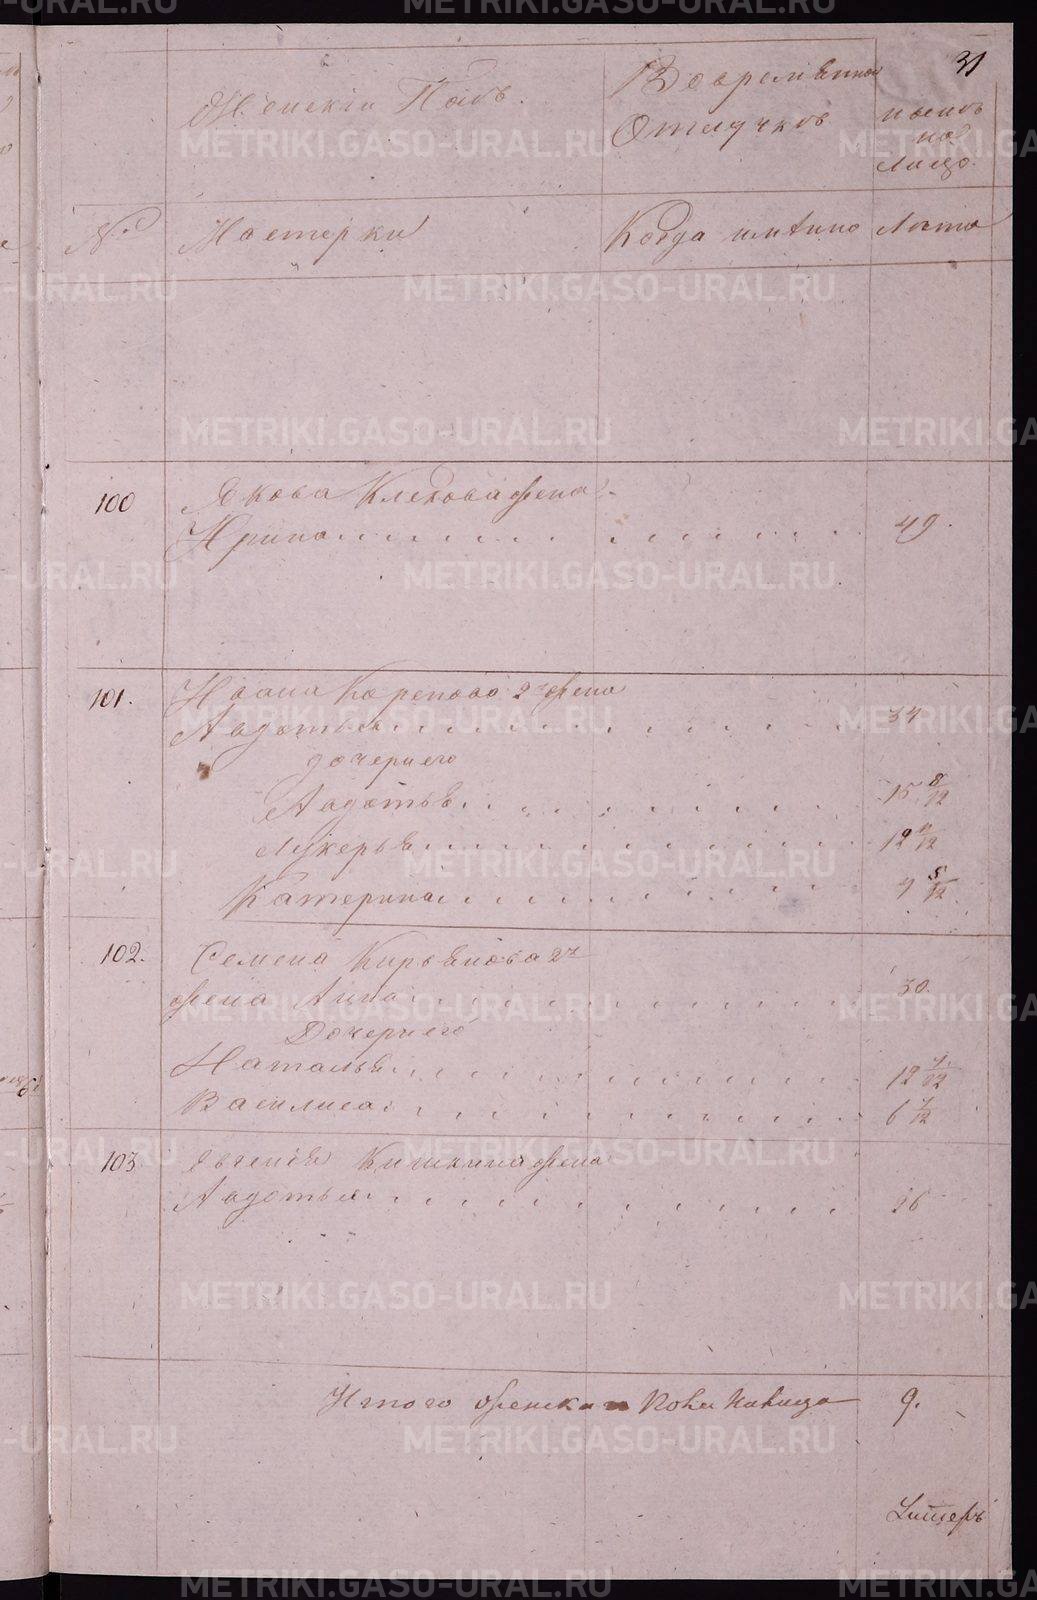 31
Женскій Полъ.
Вовременной Отлучкѣ
ныенъ на лицо
№
Мастерки
Когда имянно
Лѣта
100
Якова Клепова жена
Ирина 49.
101.
Ивана Карепова 2я жена
Авдотья 34
дочери его
Авдотья 15 8/12
Лукерья 12 11/12
Катерина 9 5/12
102.
Семена Кирьянова 2я
жена Анна 30
Дочери его
Наталья 12 1/12
Василиса 6 1/12
103.
Евгенія Кишкина жена
Авдотья 26
Итого женска пола налицо 9.
METRIKI.GASO-URAL.RU